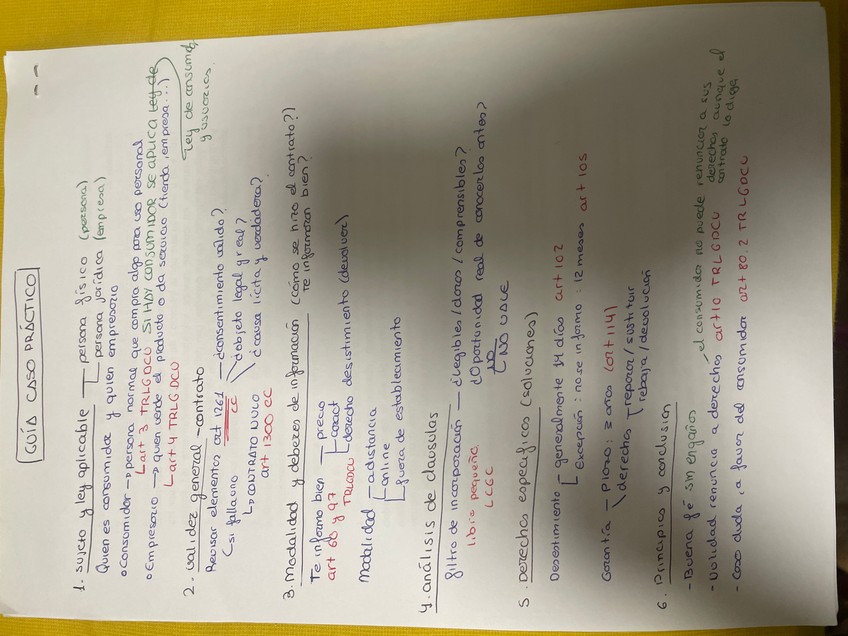 GUÍA CASO PRÁCTICO
1. Sujeto y ley aplicable — persona física (persona)
persona jurídica (empresa)
Quien es consumidor y quien empresario
• Consumidor → persona normal que compra algo para uso personal
art 3 TRLGDCU SI HAY CONSUMIDOR SE APLICA Ley de
Ley de consumid.
y usuarios.
• Empresario → quien vende el producto o da servicio (tienda, empresa...)
art 4 TRLGDCU
2. Validez general - contrato
Revisar elementos art 1261 — ¿consentimiento valido?
CC
¿objeto legal y real?
¿causa lícita y verdadera?
(si falla uno
↳ CONTRATO NULO
art 1300 CC
3. Modalidad y deberes de información (cómo se hizo el contrato?)
Te informaron bien?
Te informo bien — precio
art 60 y 97 TRLGDCU
derecho desistimiento (devolver)
Modalidad — a distancia
online
fuera de establecimiento
4. análisis de clausulas
filtro de incorporación — ¿legibles/claros/comprensibles?
¿Oportunidad real de conocerlas antes?
NO
↳ NO VALE
LCGC
5. Derechos especificos (soluciones)
Desestimiento — generalmente 14 días art 102
Excepción: no se informo: 12 meses art 105
Garantía — Plazo: 3 años (art 114)
derechos — reparar/sustituir
rebaja/devolución
6. Principios y conclusion
- Buena fé sin engaños
- Nulidad renuncia a derechos art 10 TRLGDCU
el consumidor no puede renunciar a sus
derechos aunque el
contrato lo diga
- Caso duda, a favor del consumidor art 80.2 TRLGDCU